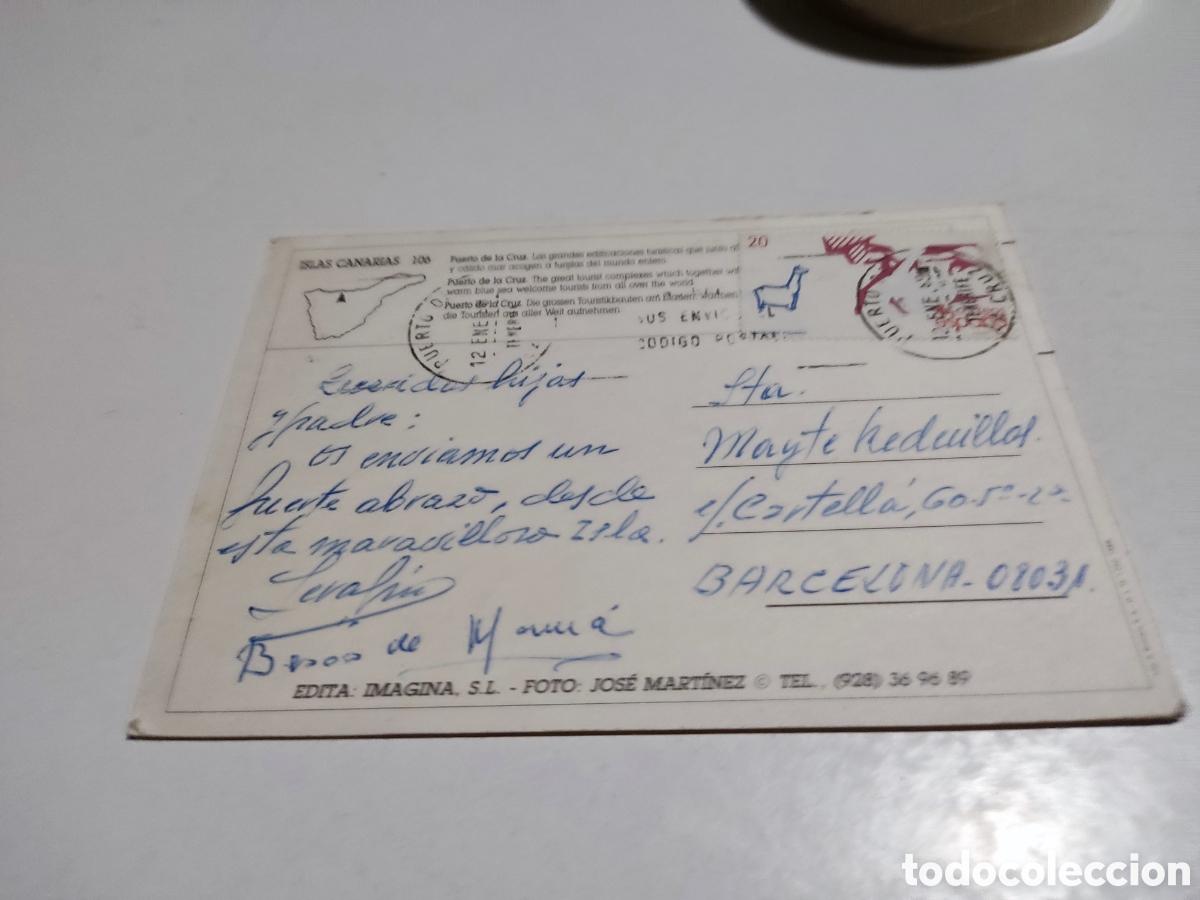 ISLAS CANARIAS 106
Puerto de la Cruz. Las grandes edificaciones turísticas que junto
y cálido mar acogen a turistas del mundo entero.
Puerto de la Cruz. The great tourist complexes which together
warm blue sea welcome tourists from all over the world
Puerto de la Cruz. Die grossen Touristikbauten am
die Touristen aus aller Welt aufnehmen.
20
PUERTO
12 ENE
SUS ENVIOS
CODIGO POSTAL
PUERTO CRUZ
Queridas hijas
y padre:
os enviamos un
fuerte abrazo, desde
esta maravillosa Isla.
Serafín
Besos de Mamá
Sta.
Mayte
c/. Cartellá, 60-5º-2ª
BARCELONA-08031
EDITA: IMAGINA, S.L. - FOTO: JOSÉ MARTÍNEZ © TEL. (928) 36 96 89
todocoleccion